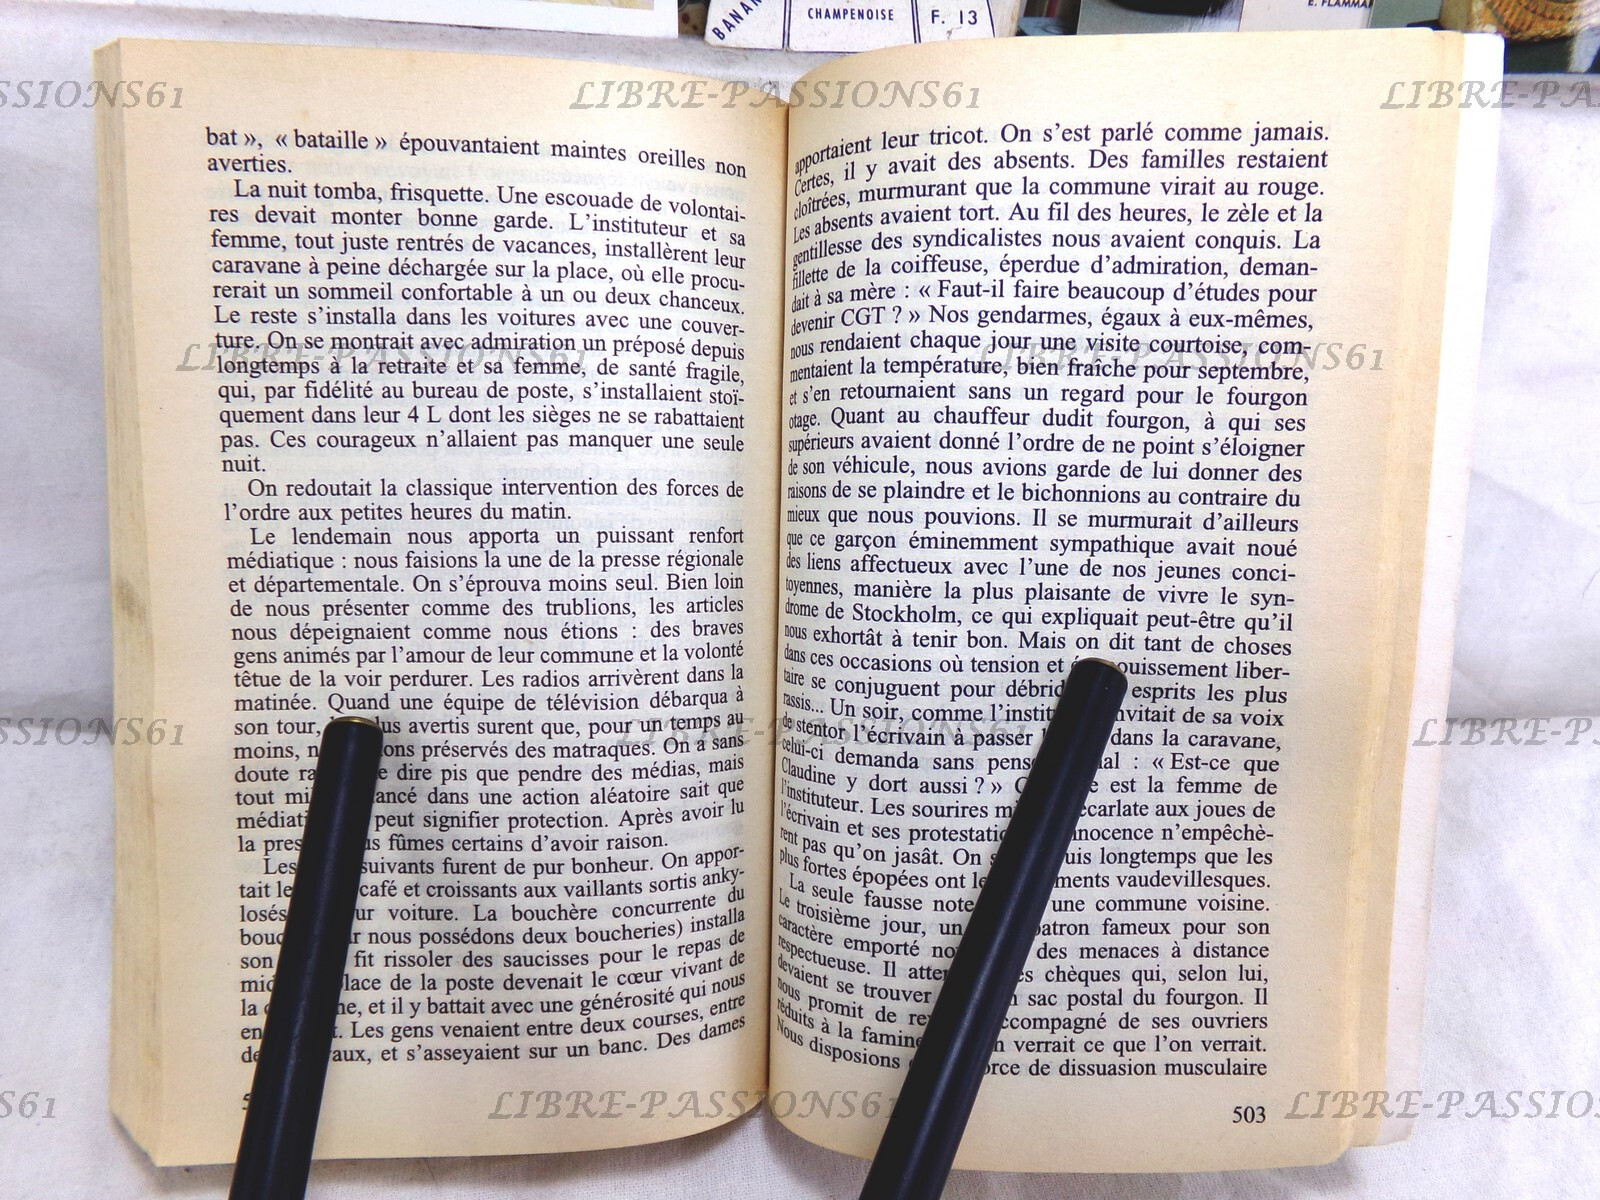 BANAN
CHAMPENOISE
F. 13
E. FLAMMA
SSIONS61
LIBRE-PASSIONS61
LIBRE-PA
bat », « bataille » épouvantaient maintes oreilles non
averties.
La nuit tomba, frisquette. Une escouade de volontai-
res devait monter bonne garde. L'instituteur et sa
femme, tout juste rentrés de vacances, installèrent leur
caravane à peine déchargée sur la place, où elle procu-
rerait un sommeil confortable à un ou deux chanceux.
Le reste s'installa dans les voitures avec une couver-
ture. On se montrait avec admiration un préposé depuis
longtemps à la retraite et sa femme, de santé fragile,
qui, par fidélité au bureau de poste, s'installaient stoï-
quement dans leur 4 L dont les sièges ne se rabattaient
pas. Ces courageux n'allaient pas manquer une seule
nuit.
On redoutait la classique intervention des forces de
l'ordre aux petites heures du matin.
Le lendemain nous apporta un puissant renfort
médiatique : nous faisions la une de la presse régionale
et départementale. On s'éprouva moins seul. Bien loin
de nous présenter comme des trublions, les articles
nous dépeignaient comme nous étions : des braves
gens animés par l'amour de leur commune et la volonté
têtue de la voir perdurer. Les radios arrivèrent dans la
matinée. Quand une équipe de télévision débarqua à
son tour, plus avertis surent que, pour un temps au
moins, préservés des matraques. On a sans
doute dire pis que pendre des médias, mais
tout lancé dans une action aléatoire sait que
peut signifier protection. Après avoir lu
la fûmes certains d'avoir raison.
Les suivants furent de pur bonheur. On appor-
tait café et croissants aux vaillants sortis anky-
losés voiture. La bouchère concurrente du
nous possédons deux boucheries) installa
son fit rissoler des saucisses pour le repas de
place de la poste devenait le cœur vivant de
la et il y battait avec une générosité qui nous
Les gens venaient entre deux courses, entre
et s'asseyaient sur un banc. Des dames
apportaient leur tricot. On s'est parlé comme jamais.
Certes, il y avait des absents. Des familles restaient
cloîtrées, murmurant que la commune virait au rouge.
Les absents avaient tort. Au fil des heures, le zèle et la
gentillesse des syndicalistes nous avaient conquis. La
fillette de la coiffeuse, éperdue d'admiration, deman-
dait à sa mère : « Faut-il faire beaucoup d'études pour
devenir CGT ? » Nos gendarmes, égaux à eux-mêmes,
nous rendaient chaque jour une visite courtoise, com-
mentaient la température, bien fraîche pour septembre,
et s'en retournaient sans un regard pour le fourgon
otage. Quant au chauffeur dudit fourgon, à qui ses
supérieurs avaient donné l'ordre de ne point s'éloigner
de son véhicule, nous avions garde de lui donner des
raisons de se plaindre et le bichonnions au contraire du
mieux que nous pouvions. Il se murmurait d'ailleurs
que ce garçon éminemment sympathique avait noué
des liens affectueux avec l'une de nos jeunes conci-
toyennes, manière la plus plaisante de vivre le syn-
drome de Stockholm, ce qui expliquait peut-être qu'il
nous exhortât à tenir bon. Mais on dit tant de choses
dans ces occasions où tension et liber-
taire se conjuguent pour esprits les plus
rassis... Un soir, comme invitait de sa voix
de stentor l'écrivain à passer dans la caravane,
celui-ci demanda sans : « Est-ce que
Claudine y dort aussi ? » est la femme de
l'instituteur. Les sourires écarlate aux joues de
l'écrivain et ses innocence n'empêchè-
rent pas qu'on jasât. On longtemps que les
plus fortes épopées ont vaudevillesques.
La seule fausse note une commune voisine.
Le troisième jour, un patron fameux pour son
caractère emporté des menaces à distance
respectueuse. Il chèques qui, selon lui,
devaient se trouver sac postal du fourgon. Il
nous promit de accompagné de ses ouvriers
réduits à la famine verrait ce que l'on verrait.
Nous disposions force de dissuasion musculaire
503
LIBRE-PASSIONS61
LIBRE-PASSIONS61
SSIONS61
LIBRE-PASSIONS61
LIBRE-PA
SS61
LIBRE-PASSIONS61
LIBRE-PASSIONS